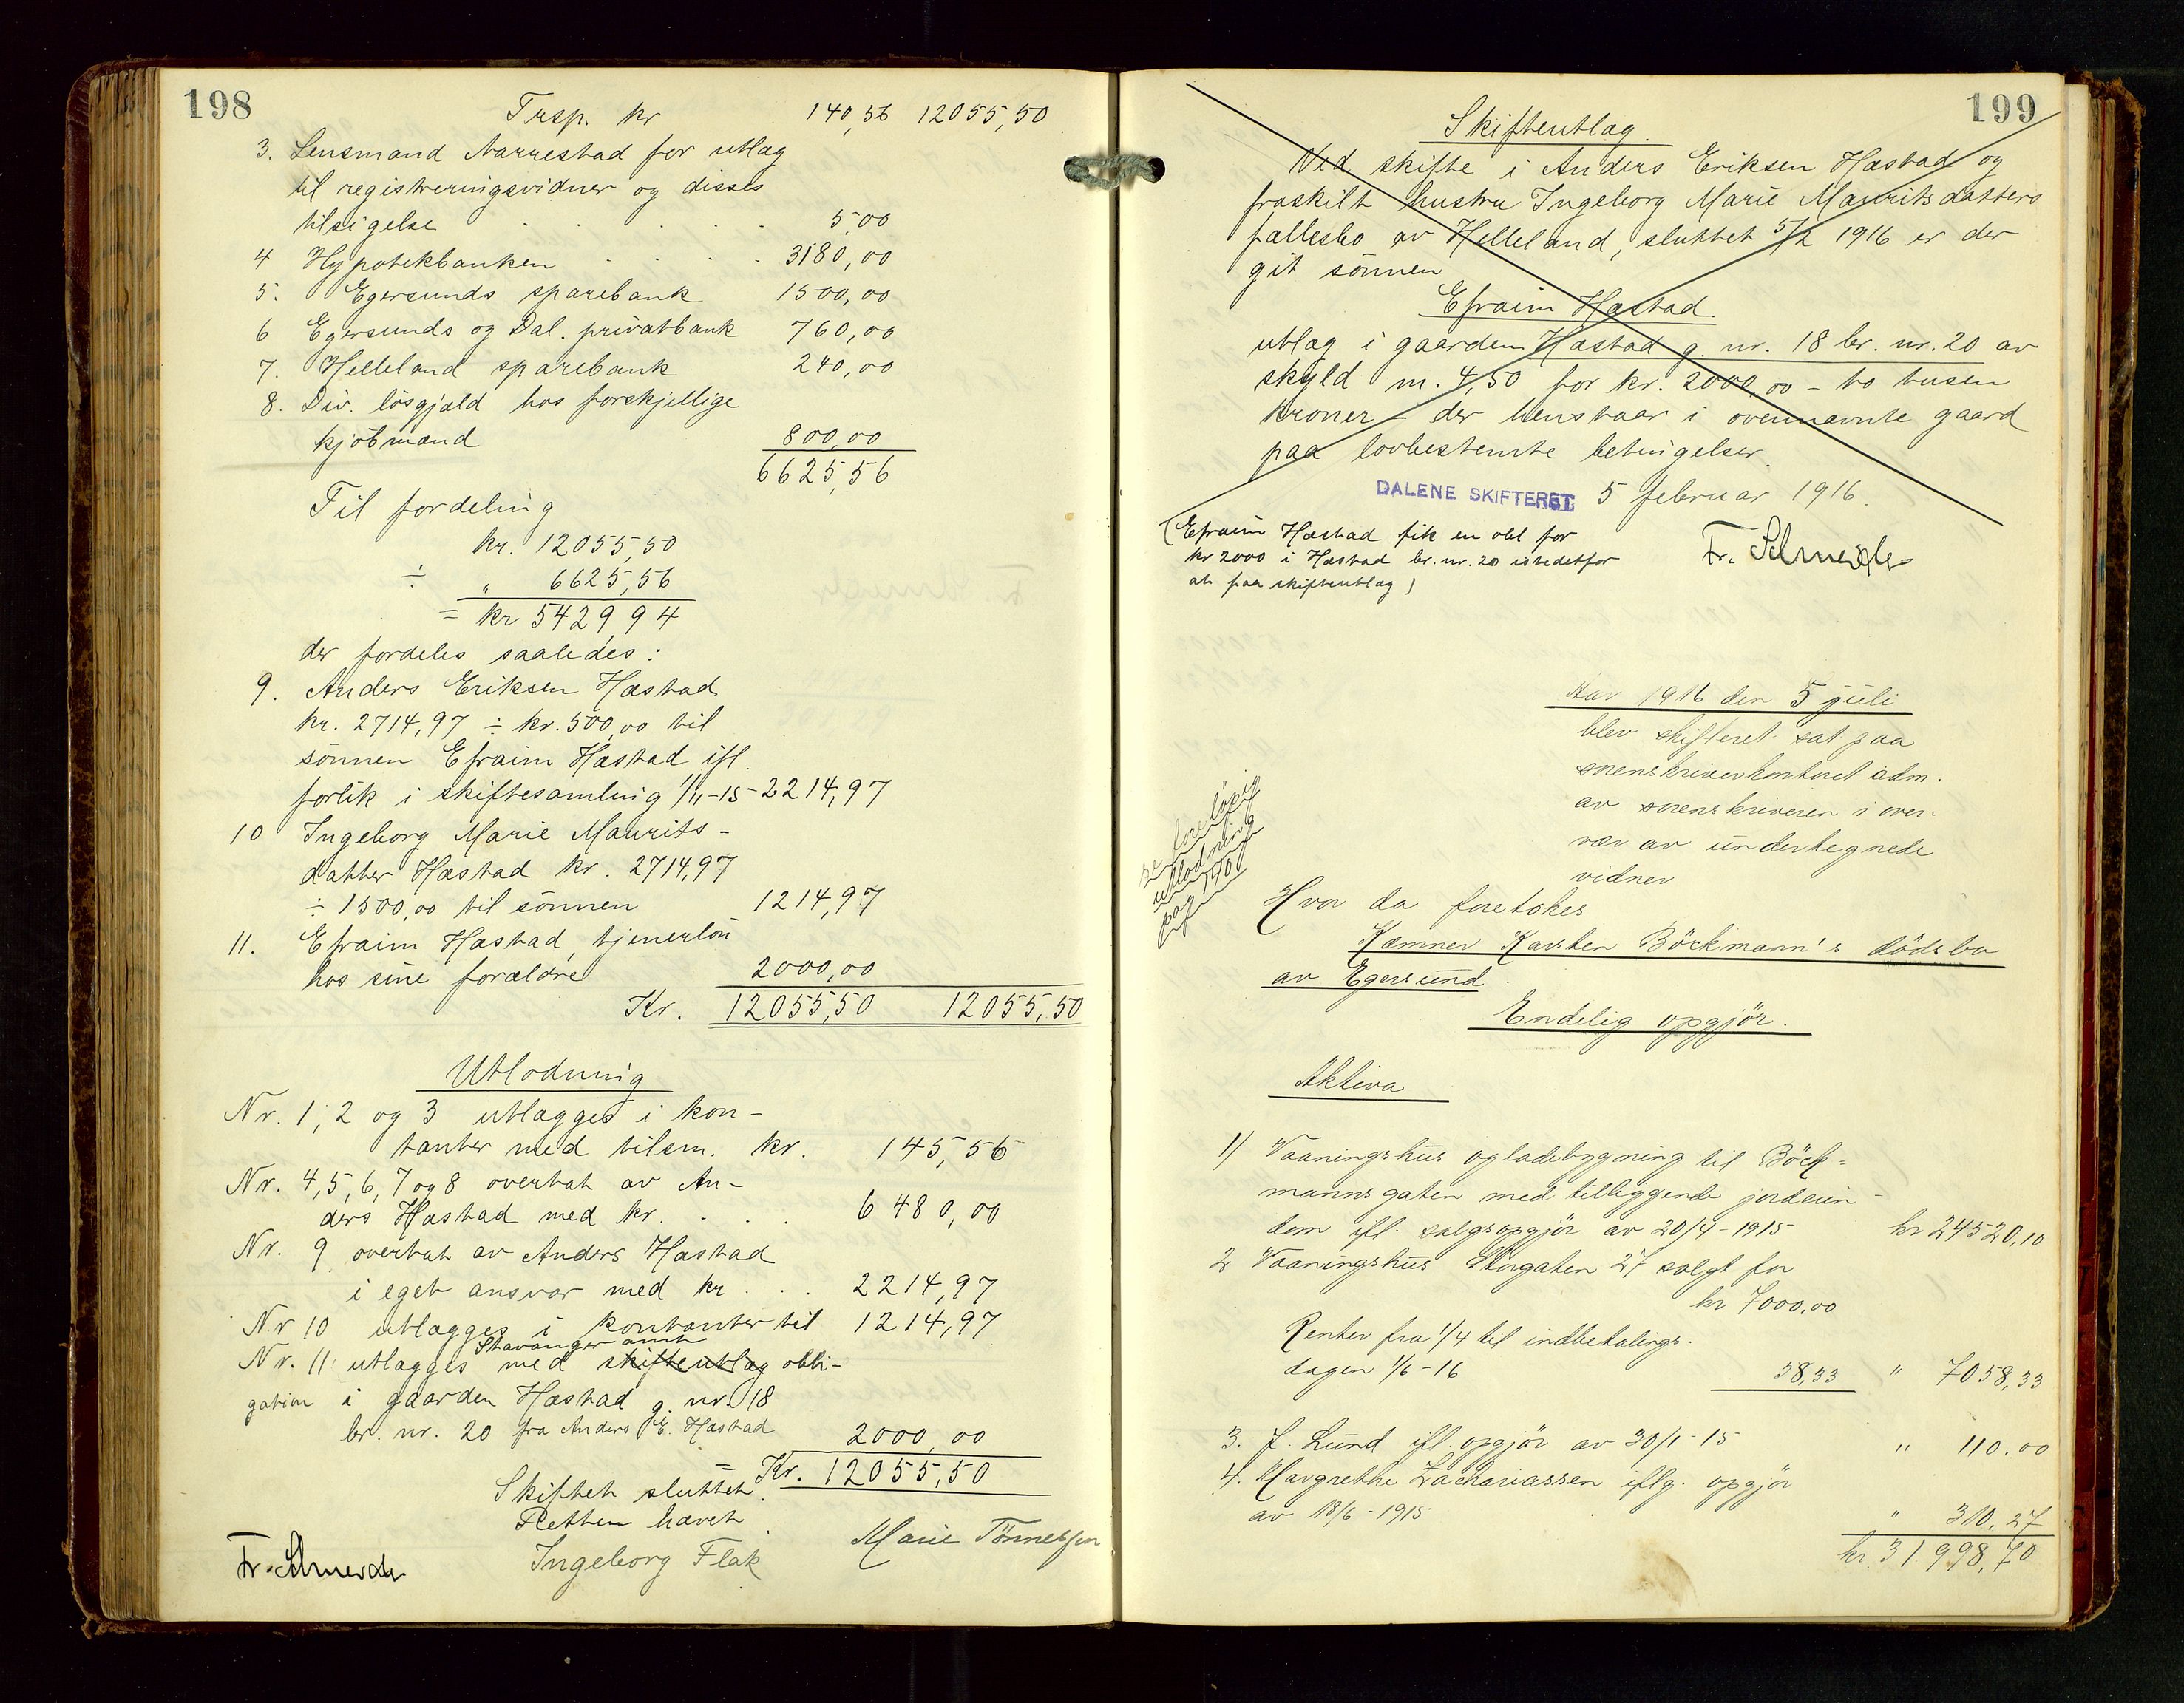 198
Trsp. kr 140,56 12055,50
3. Lensmand Narrestad for utlæg
til registreringsvidner og disses
tilsigelse . . . . . 5,00
4 Hypotekbanken . . . . 3180,00
5. Egersunds sparebank 1500,00
6 Egersunds og Dal. privatbank 760,00
7. Helleland sparebank 240,00
8. Div. løsgjæld hos forskjellige
kjöbmænd 800,00
6625,56
Til fordeling
kr. 12055,50
÷ " 6625,56
= kr 5429,94
der fordeles saaledes:
9. Anders Eriksen Hæstad
kr. 2714,97 ÷ kr. 500,00 til
sönnen Efraim Hæstad ifl.
forlik i skiftesamling 1/11-15- 2214,97
10 Ingeborg Marie Maurits-
datter Hæstad kr. 2714,97
÷ 1500,00 til sönnen 1214,97
11. Efraim Hæstad, tjenerlön
hos sine forældre 2000,00
Kr. 12055,50 12055,50
Utlodning
Nr. 1, 2 og 3 utlægges i kon-
tanter med tilsm. kr. 145,56
Nr. 4, 5, 6, 7 og 8 overtat av An-
ders Hæstad med kr. . . . 6480,00
Nr. 9 overtat av Anders Hæstad
i eget ansvar med kr . . . 2214,97
Nr 10 utlægges i kontanter til 1214,97
Stavanger amt
Nr. 11 utlægges med skifteutlæg obli-
gation i gaarden Hæstad g. nr. 18
br. nr. 20 fra Anders E. Hæstad 2000,00
= Kr. 12055,50
Skiftet sluttet.
Retten hævet.
Fr. Schneider Ingeborg Flak Marie Tönnessen
199
Skifteutlæg.
Ved skifte i Anders Eriksen Hæstad og
fraskilt hustru Ingeborg Marie Mauritsdatters
fællesbo av Helleland, sluttet 5/2 1916 er der
git sönnen
Efraim Hæstad.
utlæg i gaarden Hæstad g. nr. 18 br. nr. 20 av
skyld m. 4,50 for kr. 2000,00 - to tusen
kroner - der henstaar i ovennævnte gaard
paa lovbestemte betingelser.
DALENE SKIFTERET 5 februar 1916.
Fr. Schneider
(Efraim Hæstad fik en obl for
kr 2000 i Hæstad br. nr. 20 istedetfor
at faa skifteutlæg)
Aar 1916 den 5 juli
blev skifteret sat paa
sorenskriverkontoret adm.
av sorenskriveren i over-
vær av undertegnede
vidner
se foreløpig
utlodning
pag 190
Hvor da foretokes
Kæmner Karsten Böckmann's dödsbo
av Egersund.
Endelig opgjör.
Aktiva
1) Vaaningshus og ladebygning til Böck-
mannsgaten med tilliggende jordeien-
dom ifl. salgsopgjör av 20/4-1915 kr 24520,10
2 Vaaningshus Storgaten 27 solgt for
kr 7000,00
Renter fra 1/4 til indbetalings-
dagen 1/6-16 58,33 " 7058,33
3. J. Lund ifl. opgjör av 30/1-15 " 110.00
4. Margrethe Zachariassen iflg. opgjör
av 18/6-1915 " 310.27
kr. 31998,70